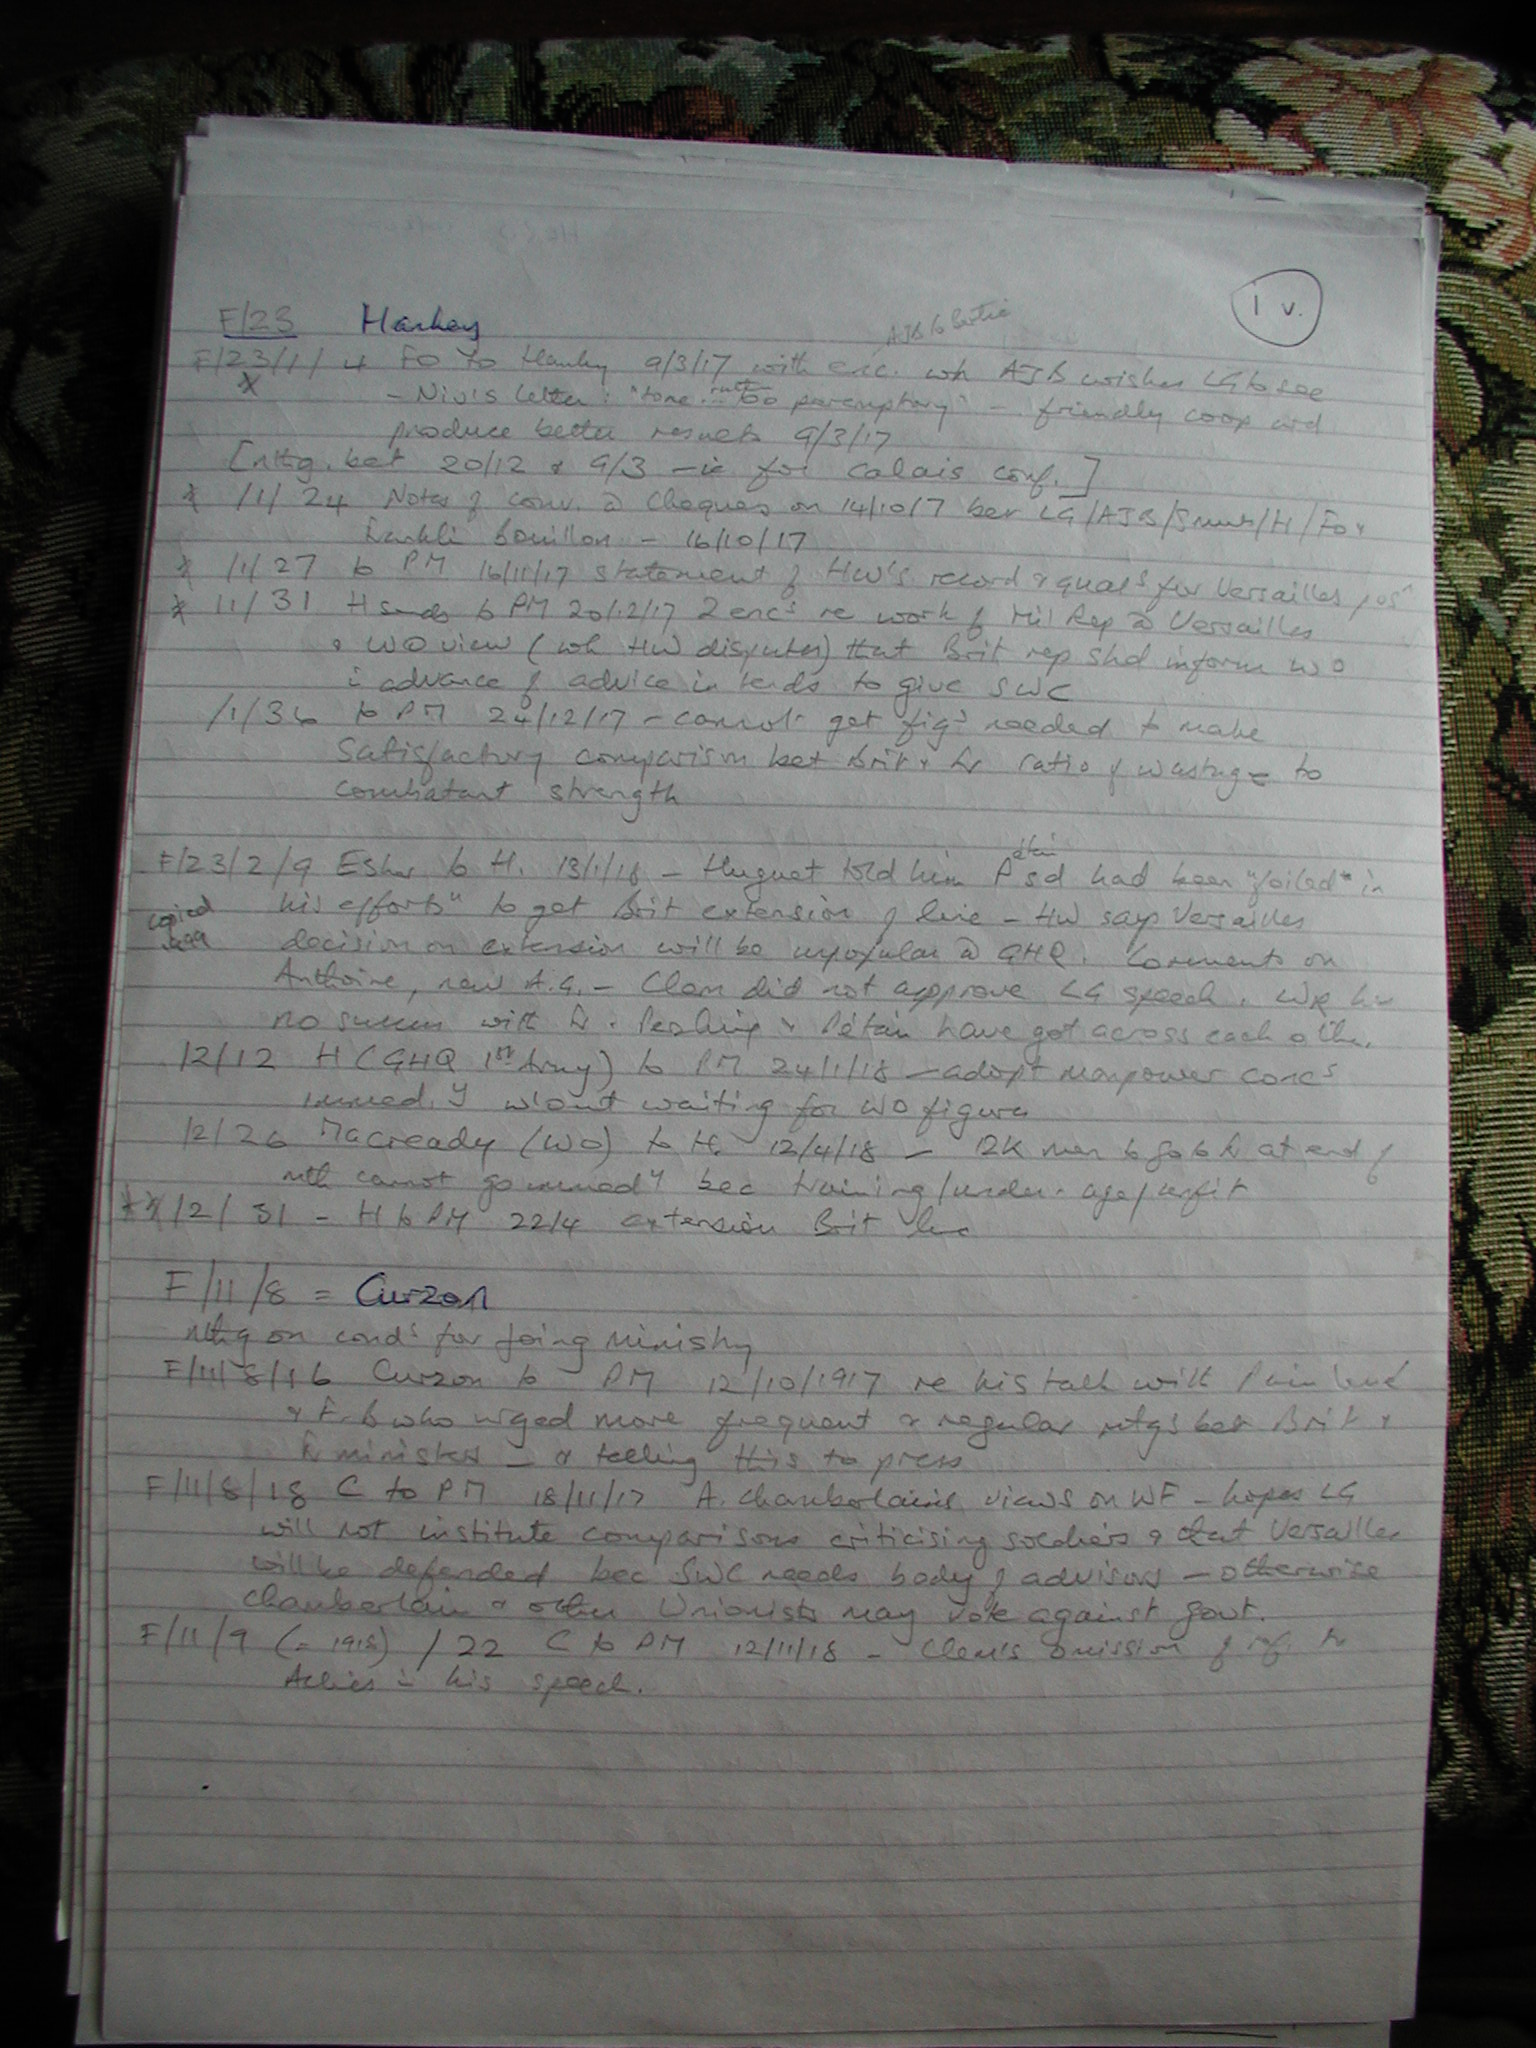 1 v.
F/23 Hankey
AJB to Bertie
F/23/1/4 FO to Hankey 9/3/17 with enc. wh AJB wishes LG to see
* - Niv's letter: "tone ... rather too peremptory" - friendly coop wd
produce better results 9/3/17
[nthg. bet 20/12 & 9/3 - ie for Calais conf.]
* /1/24 Notes of conv. @ Chequers on 14/10/17 bet LG/AJB/Smuts/H/Fo &
Franklin Bouillon - 16/10/17
* /1/27 to PM 16/11/17 statement of HW's record & quals for Versailles posn
* /1/31 H sends to PM 20/12/17 2 encs re work of Mil Rep @ Versailles
& WO view (wh HW disputes) that Brit rep shd inform WO
in advance of advice intends to give SWC
/1/36 to PM 24/12/17 - cannot get figs needed to make
satisfactory comparison bet Brit & Fr ratio of wastage to
combatant strength
F/23/2/9 Esher to H. 13/1/18 - Huguet told him Pétain sd had been "foiled" in
copied his efforts" to get Brit extension of line - HW says Versailles
decision on extension will be unpopular @ GHQ. Comments on
Anthoine, new A.G. - Clem did not approve LG speech. WR has
no success with Fr. Pershing & Pétain have got across each other.
/2/12 H (GHQ 1st Army) to PM 24/1/18 - adopt manpower concs
immed.y w'out waiting for WO figures
/2/26 Macready (WO) to H. 12/4/18 - 12K men to go to Fr at end of
mth cannot go immedy bec training/under-age/unfit
** /2/31 - H to PM 22/4 extension Brit line
F/11/8 = Curzon
nthg on conds for joing ministry
F/11/8/16 Curzon to PM 12/10/1917 re his talk with Painlevé
& F.B who urged more frequent & regular mtgs bet Brit &
Fr ministers - & telling this to press
F/11/8/18 C to PM 18/11/17 A. Chamberlain's views on WF - hopes LG
will not institute comparisons criticising soldiers & that Versailles
will be defended bec SWC needs body of advisors - otherwise
Chamberlain & other Unionists may vote against Govt.
F/11/9 (= 1918) /22 C to PM 12/11/18 - Clem's omission of ref. to
Allies in his speech.